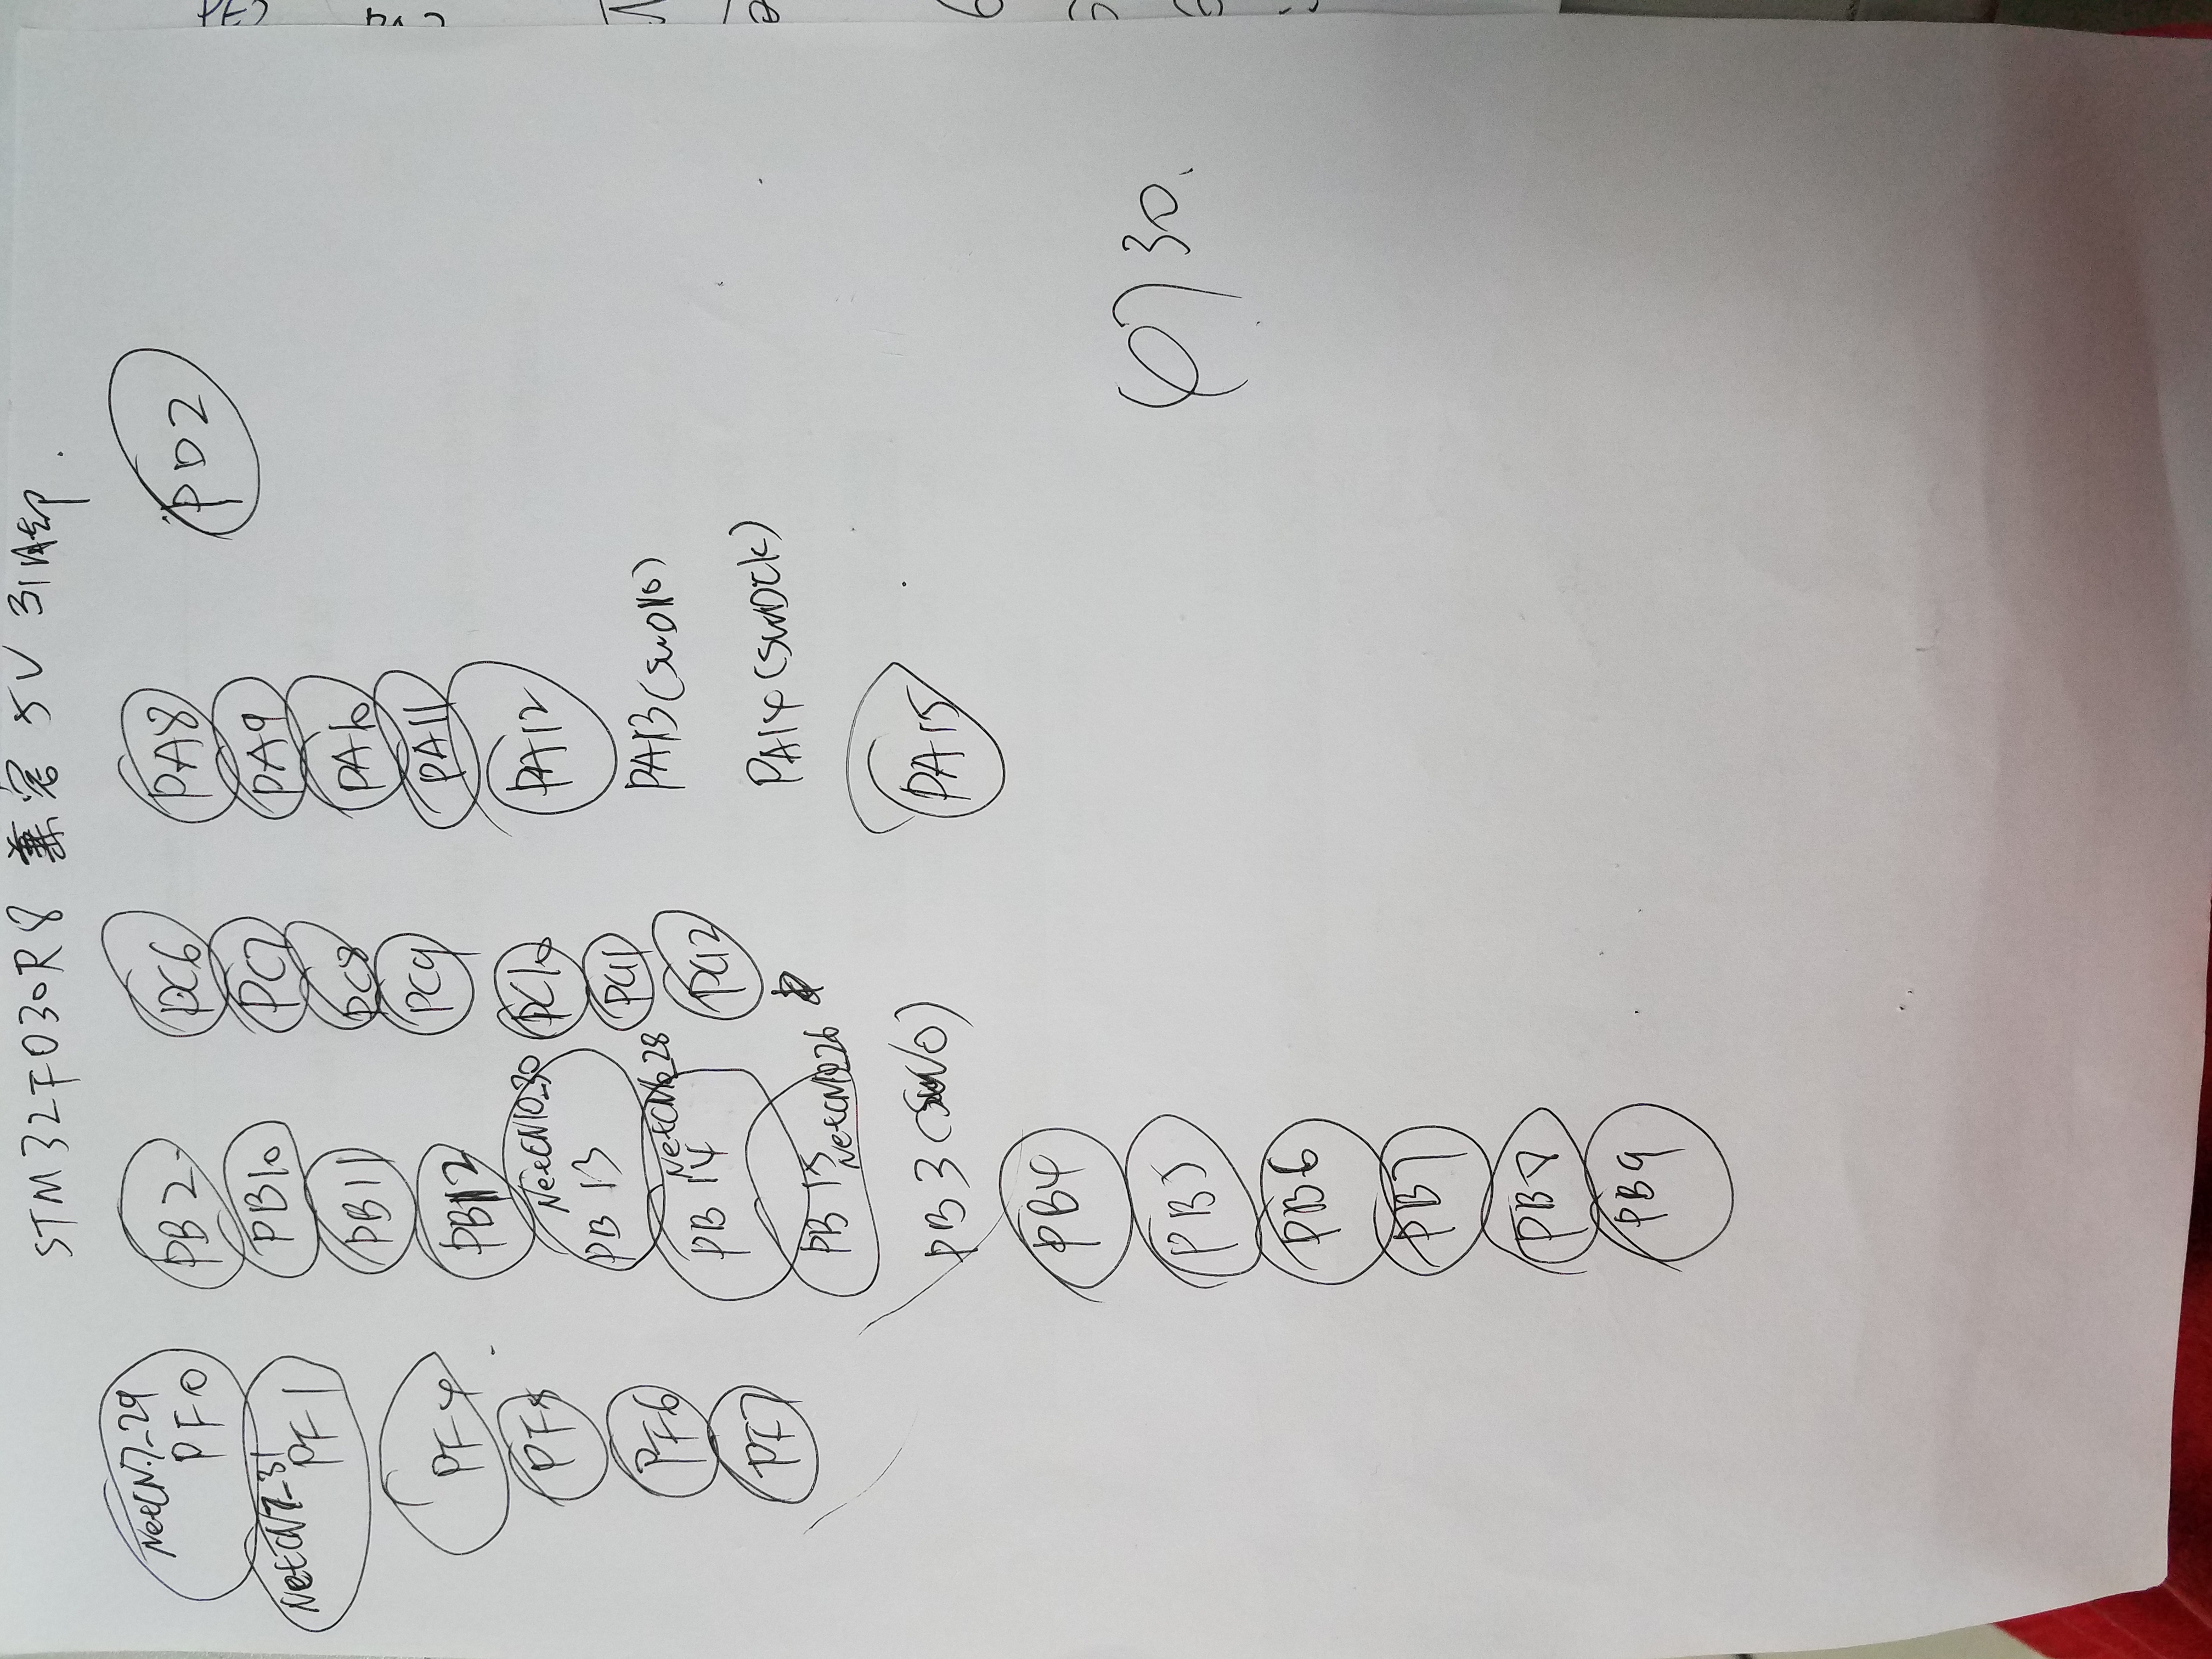 STM32F030R8 兼容 5V 引脚.
NetCN7_29
PF0
NetCN7_31
PF1
PF4
PF5
PF6
PF7
PB2
PB10
PB11
PB12
NetCN10_30
PB13
NetCN10_28
PB14
PB15
NetCN10_26
PB3 (SWO)
PB4
PB5
PB6
PB7
PB8
PB9
PC6
PC7
PC8
PC9
PC10
PC11
PC12
PA8
PA9
PA10
PA11
PA12
PA13 (SWDIO)
PA14 (SWDCK)
PA15
PD2
30.